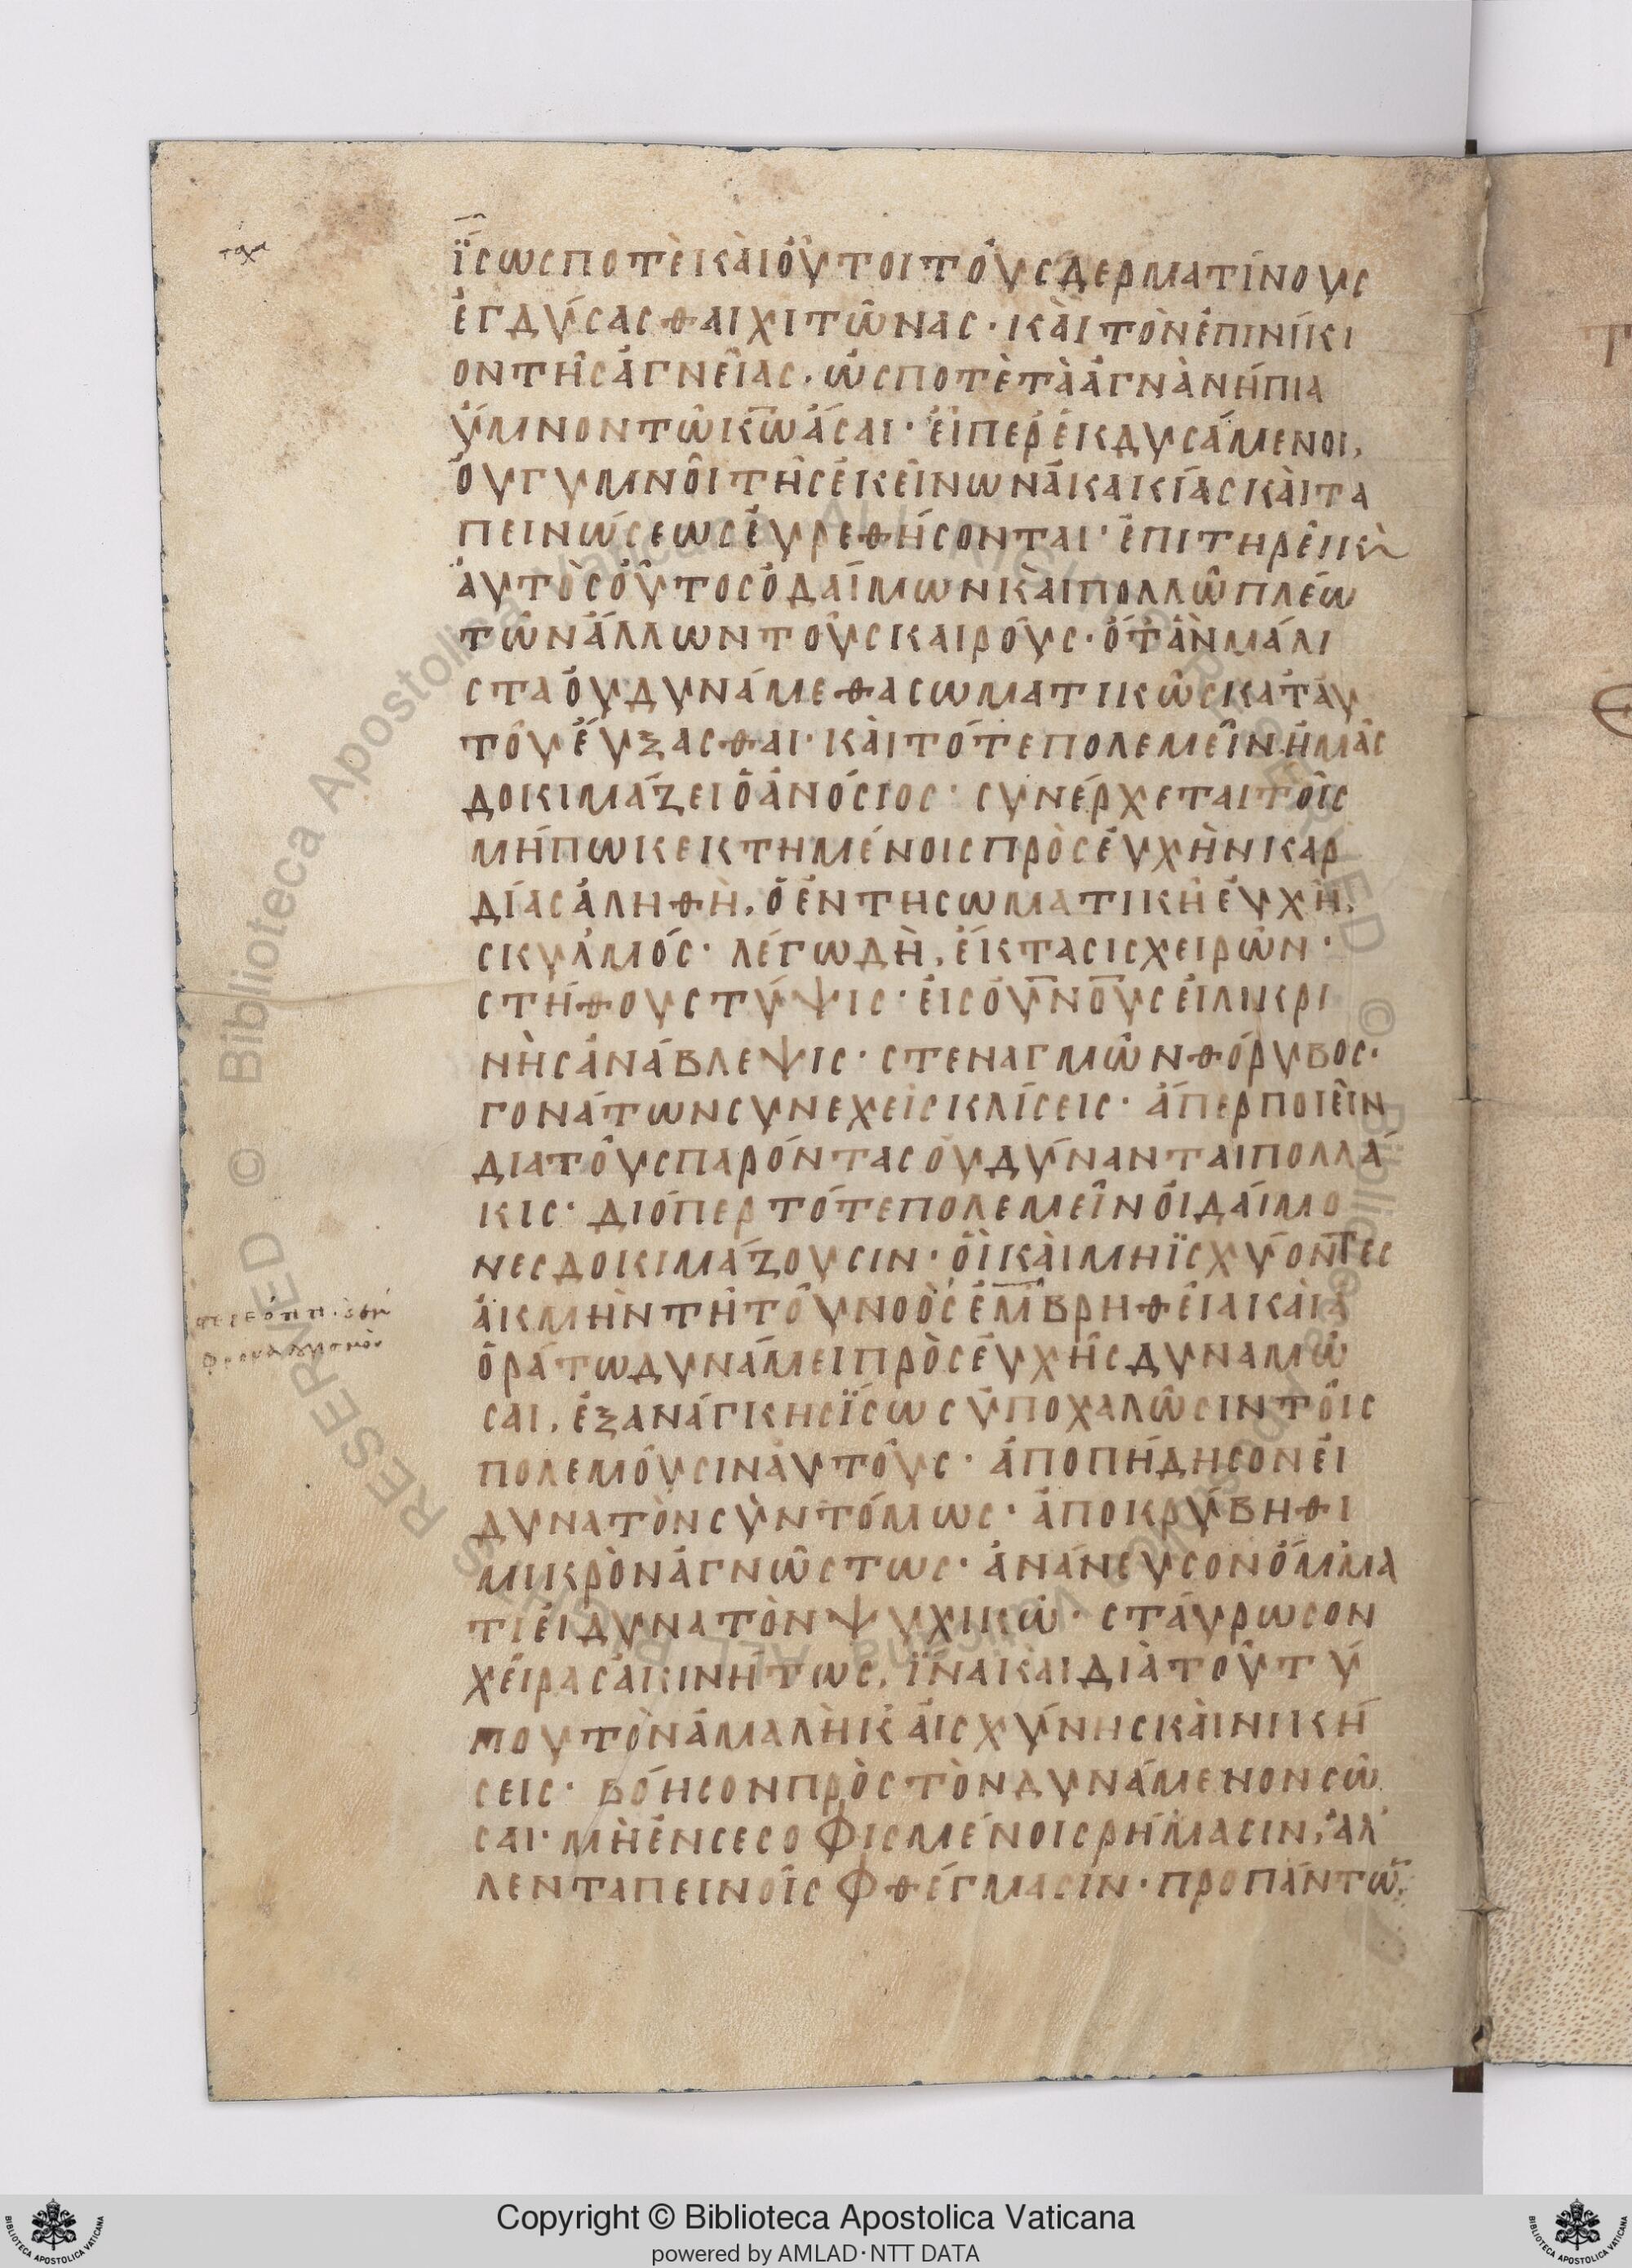 ταχα
ἴσως ποτὲ καὶ οὗτοι τοὺς δερματίνους
ἐγδύσασθαι χιτῶνας· καὶ τὸν ἐπινίκι
ον τῆς ἁγνείας, ὥς ποτὲ τὰ ἁγνὰ νήπια
ὕμνον τῶ κω ἆσαι· εἴπερ ἐκδυσάμενοι,
οὐ γυμνοὶ τῆς ἐκείνων ἀκακίας καὶ τα
πεινώσεως εὑρεθήσονται· ἐπιτηρεῖ κὶ
αὐτὸς οὗτος ὁ δαίμων καὶ πολλῶ πλέω
τῶν ἄλλων τοὺς καιρούς· ὅτ' ἂν μάλι
στα οὐ δυνάμεθα σωματικῶς κατ' αὐ
τοῦ εὔξασθαι· καὶ τότε πολεμεῖν ἡμᾶς
δοκιμάζει ὁ ἀνόσιος· συνέρχεται τοῖς
μήπω κεκτημένοις προσευχὴν καρ
δίας ἀληθῆ, ὁ ἐν τῆ σωματικῆ εὐχῆ,
σκυλμός· λέγω δὴ, ἔκτασις χειρῶν·
στήθους τύψις· εἰς οὐνοὺς εἰλικρι
νὴς ἀνάβλεψις· στεναγμῶν θόρυβος·
γονάτων συνεχεῖς κλίσεις· ἅπερ ποιεῖν
διὰ τοὺς παρόντας οὐ δύνανται πολλά
κις· διόπερ τότε πολεμεῖν οἱ δαίμο
νες δοκιμάζουσιν· οἳ καὶ μὴ ἰσχύοντες
ἀκμὴν τῆ τοῦ νοὸς ἐμβρηθεία καὶ ἀ
οράτω δυνάμει προσευχῆς δυναμῶ
σαι, ἐξ ἀνάγκης ἴσως ὑποχαλῶσιν τοῖς
πολεμοῦσιν αὐτούς· ἀποπήδησον εἰ
δυνατὸν συντόμως· ἀποκρύβηθι
μικρὸν ἀγνώστως· ἀνάνευσον ὄμμα
τι εἰ δυνατὸν ψυχικῶ· σταύρωσον
χεῖρας ἀκινήτως, ἵνα καὶ διὰ τοῦ τύ
που τὸν ἀμαλὴκ αἰσχύνης καὶ νική
σεις· βόησον πρὸς τὸν δυνάμενον σῶ
σαι· μὴ ἐν σεσοφισμένοις ῥήμασιν, ἀλ
λ' ἐν ταπεινοῖς φθέγμασιν· προ πάντω